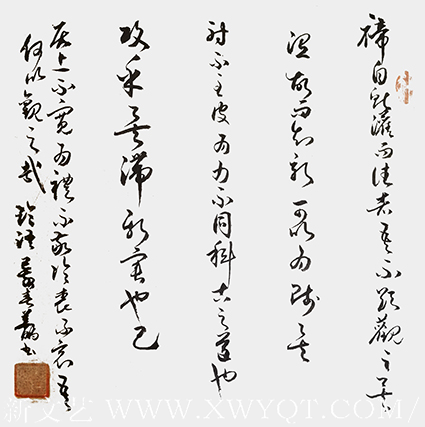 禘自既灌而往者吾不欲觀之矣
温故而知新可以为師矣
射不主皮为力不同科古之道也
攻乎異端斯害也已
居上不寬为禮不敬臨喪不哀吾
何以觀之哉 論語 書
新文艺 WWW.XWYQT.COM/